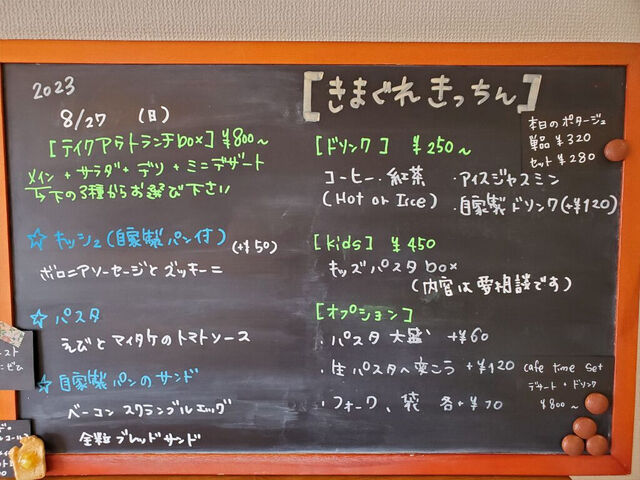 2023
8/27 (日)
[テイクアウトランチbox] ¥800~
メイン + サラダ + デリ + ミニデザート
↳下の3種からお選び下さい
☆ キッシュ (自家製パン付) (+¥50)
ボロニアソーセージとズッキーニ
☆ パスタ
えびとマイタケのトマトソース
☆ 自家製パンのサンド
ベーコン スクランブルエッグ
全粒ブレッドサンド
[きまぐれきっちん]
本日のポタージュ
単品 ¥320
セット ¥280
[ドリンク] ¥250~
コーヒー・紅茶 ・アイスジャスミン
(Hot or Isce) ・自家製ドリンク(+¥120)
[kids] ¥450
キッズパスタbox
(内容は要相談です)
[オプション]
・パスタ 大盛 +¥60
・生パスタへ変こう +¥120
・フォーク、袋 各+¥10
cafe time set
デザート・ドリンク
¥800~